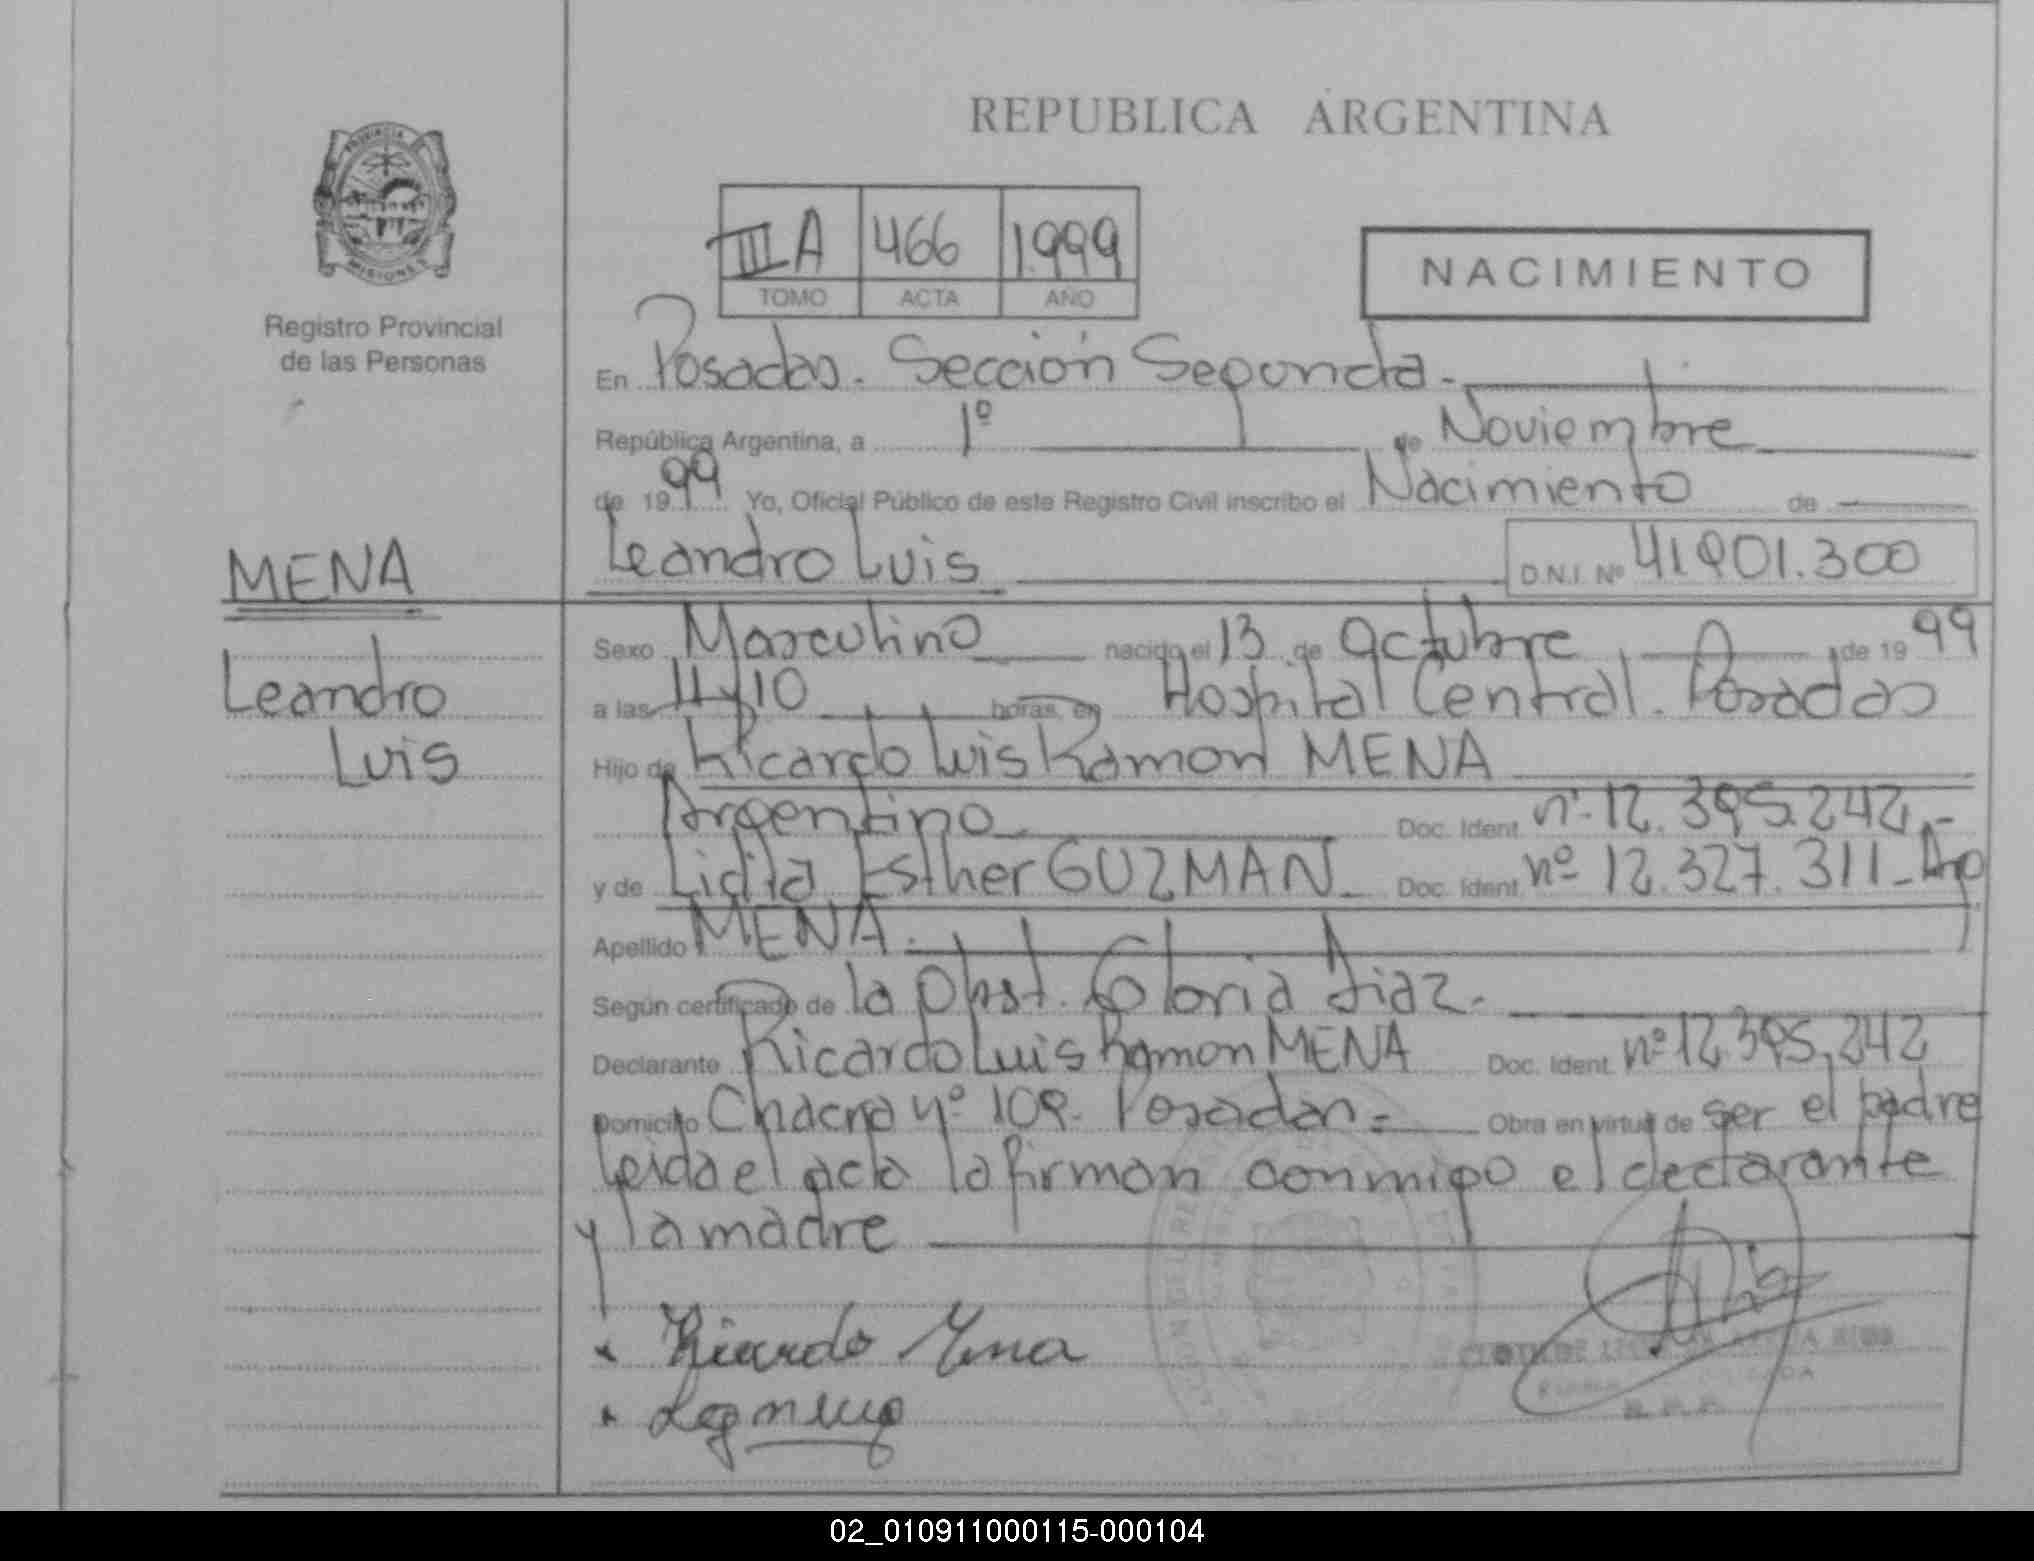 REPUBLICA ARGENTINA
PROVINCIA
MISIONES
Registro Provincial
de las Personas
III A 466 1.999
TOMO ACTA AÑO
NACIMIENTO
En Posadas. Sección Segunda.
República Argentina, a 1º de Noviembre
de 1999 Yo, Oficial Público de este Registro Civil inscribo el Nacimiento de
MENA
Leandro Luis D.N.I. Nº 41.901.300
Leandro
Luis
Sexo Masculino nacido el 13 de Octubre de 1999
a las 11 y 10 horas, en Hospital Central. Posadas
Hijo de Ricardo Luis Ramon MENA
Argentino Doc. Ident. nº 12.395.242.-
y de Lidia Esther GUZMAN Doc. Ident. nº 12.327.311- Arg
Apellido MENA.
Según certificado de la Obst. Gloria Diaz.
Declarante Ricardo Luis Ramon MENA Doc. Ident. nº 12.395.242
Domicilio Chacra nº 109. Posadas = Obra en virtud de ser el padre
leida el acta la firman conmigo el declarante
y la madre
Ricardo Mena